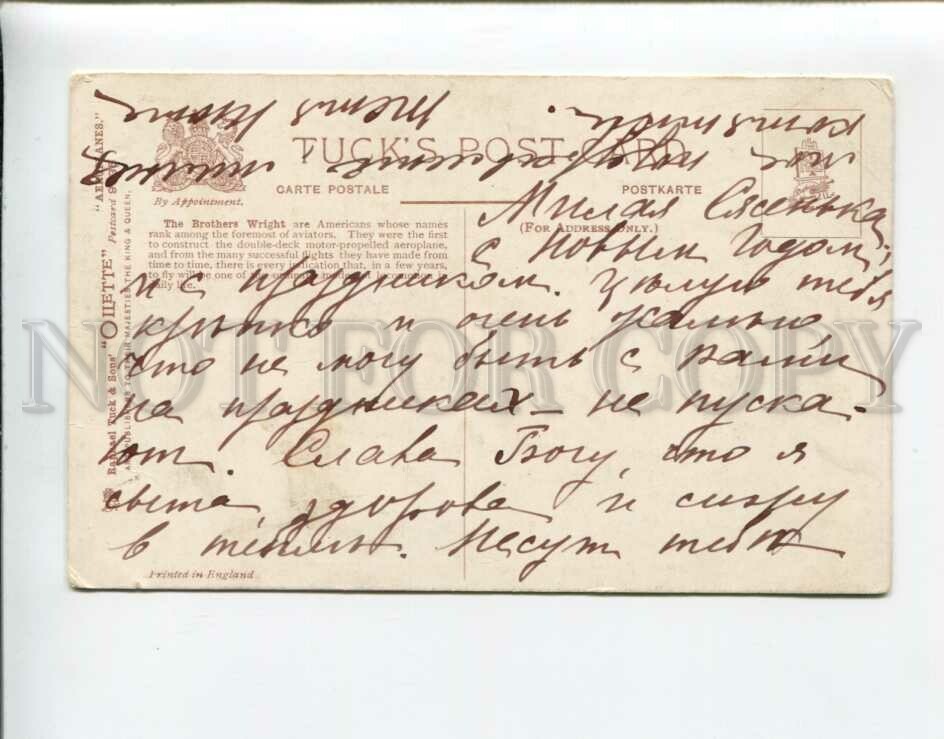 "AEROPLANES."
Postcard
Raphael Tuck & Sons' "OILETTE"
ART PUBLISHERS TO THEIR MAJESTIES THE KING & QUEEN.
By Appointment.
TUCK'S POST CARD
CARTE POSTALE
POSTKARTE
(FOR ADDRESS ONLY.)
The Brothers Wright are Americans whose names
rank among the foremost of aviators. They were the first
to construct the double-deck motor-propelled aeroplane,
and from the many successful flights they have made from
time to time, there is every indication that, in a few years,
to fly will be one of
daily life.
Милая
с Новым Годом,
и с праздником. Целую тебя
крепко и очень жалею
что не могу быть с вами
на праздниках – не пуска-
ют. Слава Богу, что я
здорова и сижу
в тепле. Несут тебе
Printed in England
NOT FOR COPY